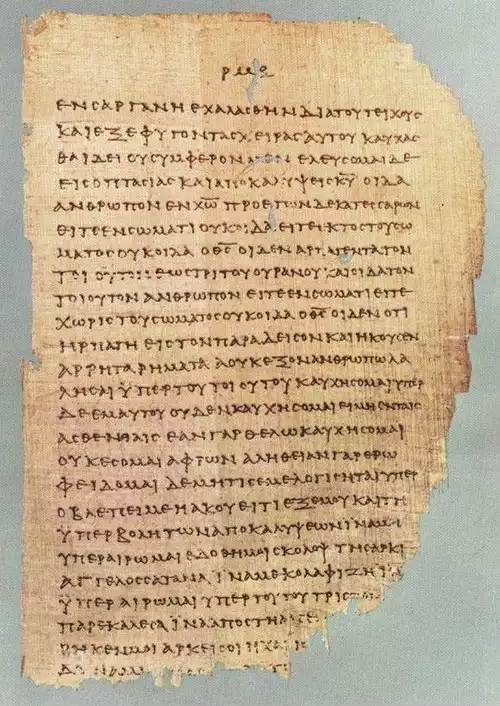 ΕΝϹΑΡΓΑΝΗΕΧΑΛΑϹΘΗΝΔΙΑΤΟΥΤΕΙΧΟΥϹ
ΚΑΙΕΞΕΦΥΓΟΝΤΑϹΧΕΙΡΑϹΑΥΤΟΥΚΑΥΧΑϹ
ΘΑΙΔΕΙΟΥϹΥΜΦΕΡΟΝ ΕΛΕΥϹΟΜΑΙΔΕ
ΕΙϹΟΠΤΑϹΙΑϹΚΑΙΑΠΟΚΑΛΥΨΕΙϹΚ̅Υ̅ΟΙΔΑ
ΑΝΘΡΩΠΟΝΕΝΧ̅Ω̅ΠΡΟΕΤΩΝΔΕΚΑΤΕϹϹΑΡΩΝ
ΕΙΤΕΕΝϹΩΜΑΤΙΟΥΚΟΙΔΑΕΙΤΕΕΚΤΟϹΤΟΥϹΩ
ΜΑΤΟϹΟΥΚΟΙΔΑΟΘ̅Ϲ̅ΟΙΔΕΝΑΡΠΑΓΕΝΤΑΤΟΝ
ΤΟΙΟΥΤΟΝΕΩϹΤΡΙΤΟΥΟΥΡΑΝΟΥΚΑΙΟΙΔΑΤΟΝ
ΤΟΙΟΥΤΟΝΑΝΘΡΩΠΟΝΕΙΤΕΕΝϹΩΜΑΤΙΕΙΤΕ
ΧΩΡΙϹΤΟΥϹΩΜΑΤΟϹΟΥΚΟΙΔΑΟΘ̅Ϲ̅ΟΙΔΕΝΟΤΙ
ΗΡΠΑΓΗΕΙϹΤΟΝΠΑΡΑΔΕΙϹΟΝΚΑΙΗΚΟΥϹΕΝ
ΑΡΡΗΤΑΡΗΜΑΤΑΑΟΥΚΕΞΟΝΑΝΘΡΩΠΩΛΑ
ΛΗϹΑΙΫΠΕΡΤΟΥΤΟΙΟΥΤΟΥΚΑΥΧΗϹΟΜΑΙΥΠΕΡ
ΔΕΕΜΑΥΤΟΥΟΥΔΕΝΚΑΥΧΗϹΟΜΑΙΕΙΜΗΕΝΤΑΙϹ
ΑϹΘΕΝΙΑΙϹΕΑΝΓΑΡΘΕΛΩΚΑΥΧΗϹΟΜΑΙ
ΟΥΚΕϹΟΜΑΙΑΦΡΩΝΑΛΗΘΕΙΑΝΓΑΡΕΡΩ
ΦΕΙΔΟΜΑΙΔΕΜΗΤΙϹΕΜΕΛΟΓΙϹΗΤΑΙΥΠΕΡ
ΟΒΛΕΠΕΙΜΕΗΑΚΟΥΕΙΤΙΕΞΕΜΟΥΚΑΙΤΗ
ΫΠΕΡΒΟΛΗΤΩΝΑΠΟΚΑΛΥΨΕΩΝΪΝΑΜΗ
ΥΠΕΡΑΙΡΩΜΑΙΕΔΟΘΗΜΟΙϹΚΟΛΟΨΤΗϹΑΡΚΙ
ΑΓΓΕΛΟϹϹΑΤΑΝΑΪΝΑΜΕΚΟΛΑΦΙΖΗΪΝΑ
ΫΠΕΡΑΙΡΩΜΑΙΥΠΕΡΤΟΥΤΟΥΤΡΙϹ
ΠΑΡΕΚΑΛΕϹΑΪΝΑΑΠΟϹΤΗ
ΡΗΚΕΝΜΟΙΑΡΚΕΙϹΟΙΗΧΑΡΙϹ